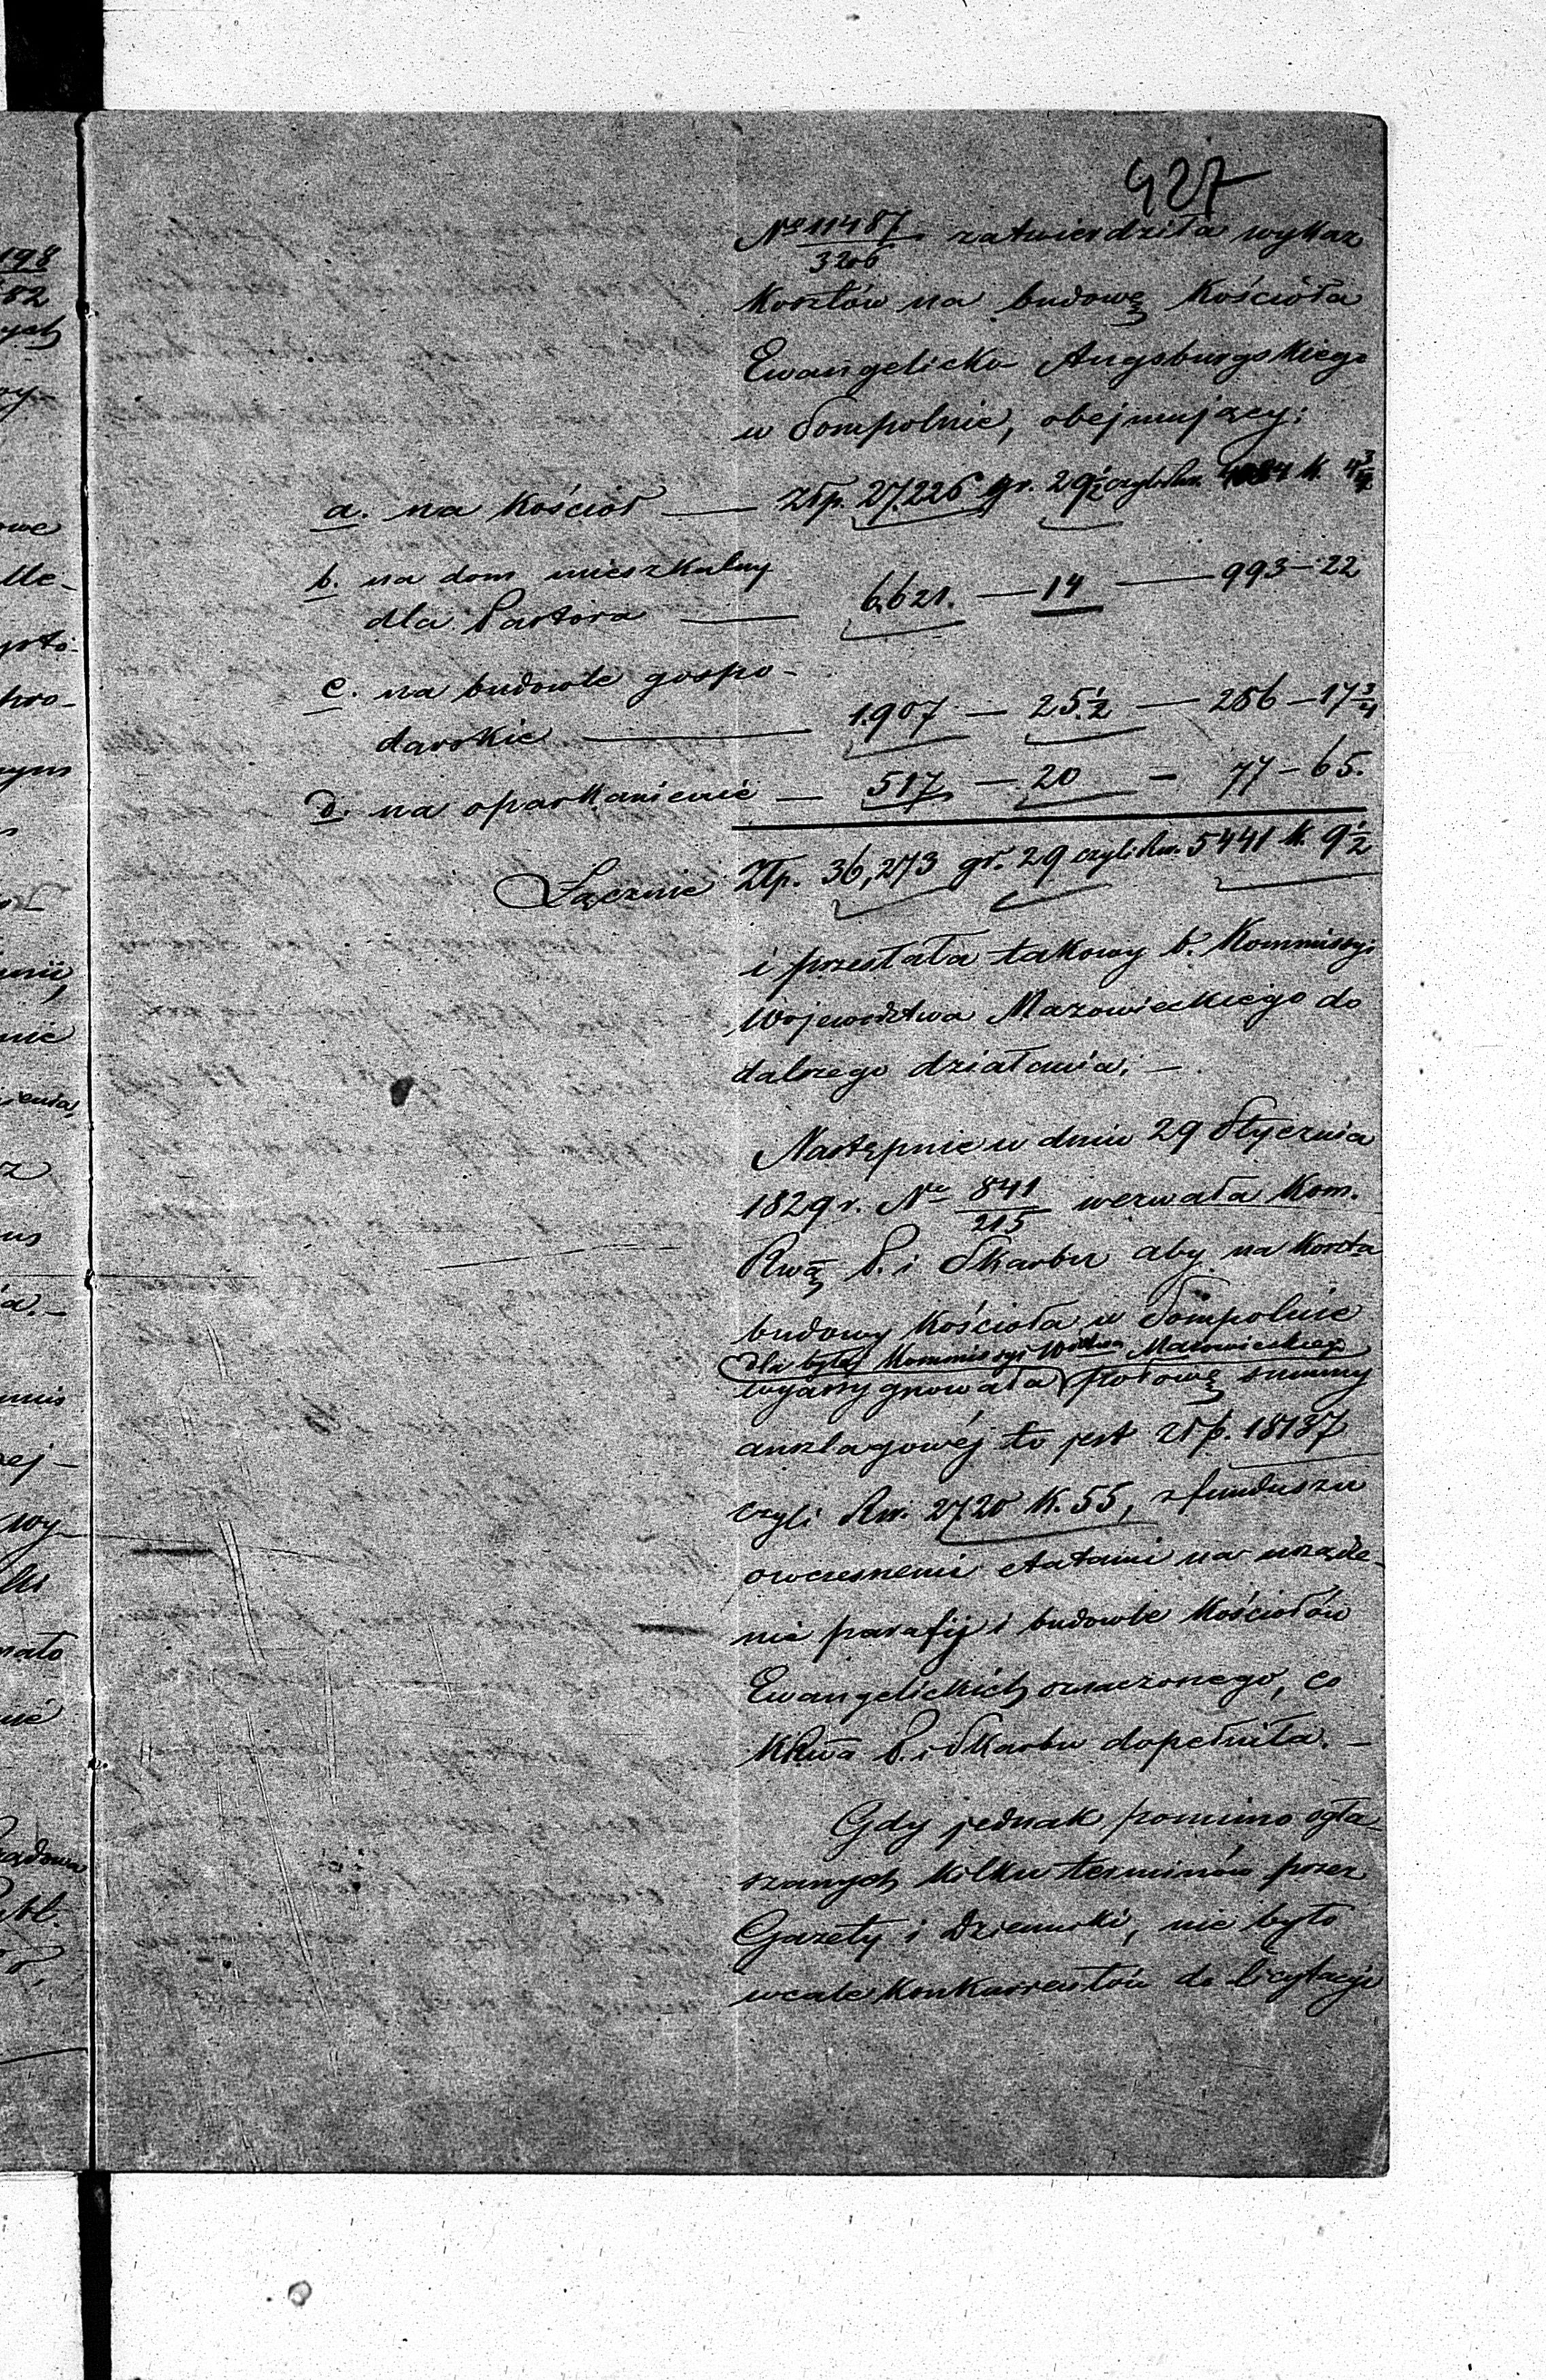 427
No 11487/3206 zatwierdziła wykaz
Kosztów na budowę Kościoła
Ewangelicko-Augsburgskiego
w Sompolnie, obejmujący:
a. na Kościół — Złp. 27.226 gr. 29½ czyli Rsr. 4084 k. 4¾
b. na dom mieszkalny
dla Pastora — 6,621. — 14 — 993 — 22
c. na budowle gospo-
darskie — 1.907 — 25½ — 286 — 17¾
d. na oparkanienie — 517 — 20 — 77 — 65.
Łącznie Złp. 36,273 gr. 29 czyli Rsr. 5441 k. 9½
i przesłała takowy b. Kommissyi
Województwa Mazowieckiego do
dalszego działania. —
Następnie w dniu 29 Stycznia
1829 r. No 841/215 wezwała Kom.
Rwą P. i Skarbu aby na koszta
budowy Kościoła w Sompolnie
dla byłej Kommissyi Wódtwa Mazowieckiego
wyassygnowała połowę summy
anszlagowéj to jest złp. 18137
czyli Rsr. 2720 k. 55, z funduszu
owczesnemi etatami na urządze-
nie parafij i budowle Kościołów
Ewangelickich oznaczonego, co
KRwa P. i Skarbu dopełniła. —
Gdy jednak pomimo ogła-
szanych kilku terminów przez
Gazety i Dzienniki, nie było
wcale konkurrentów do licytacyi